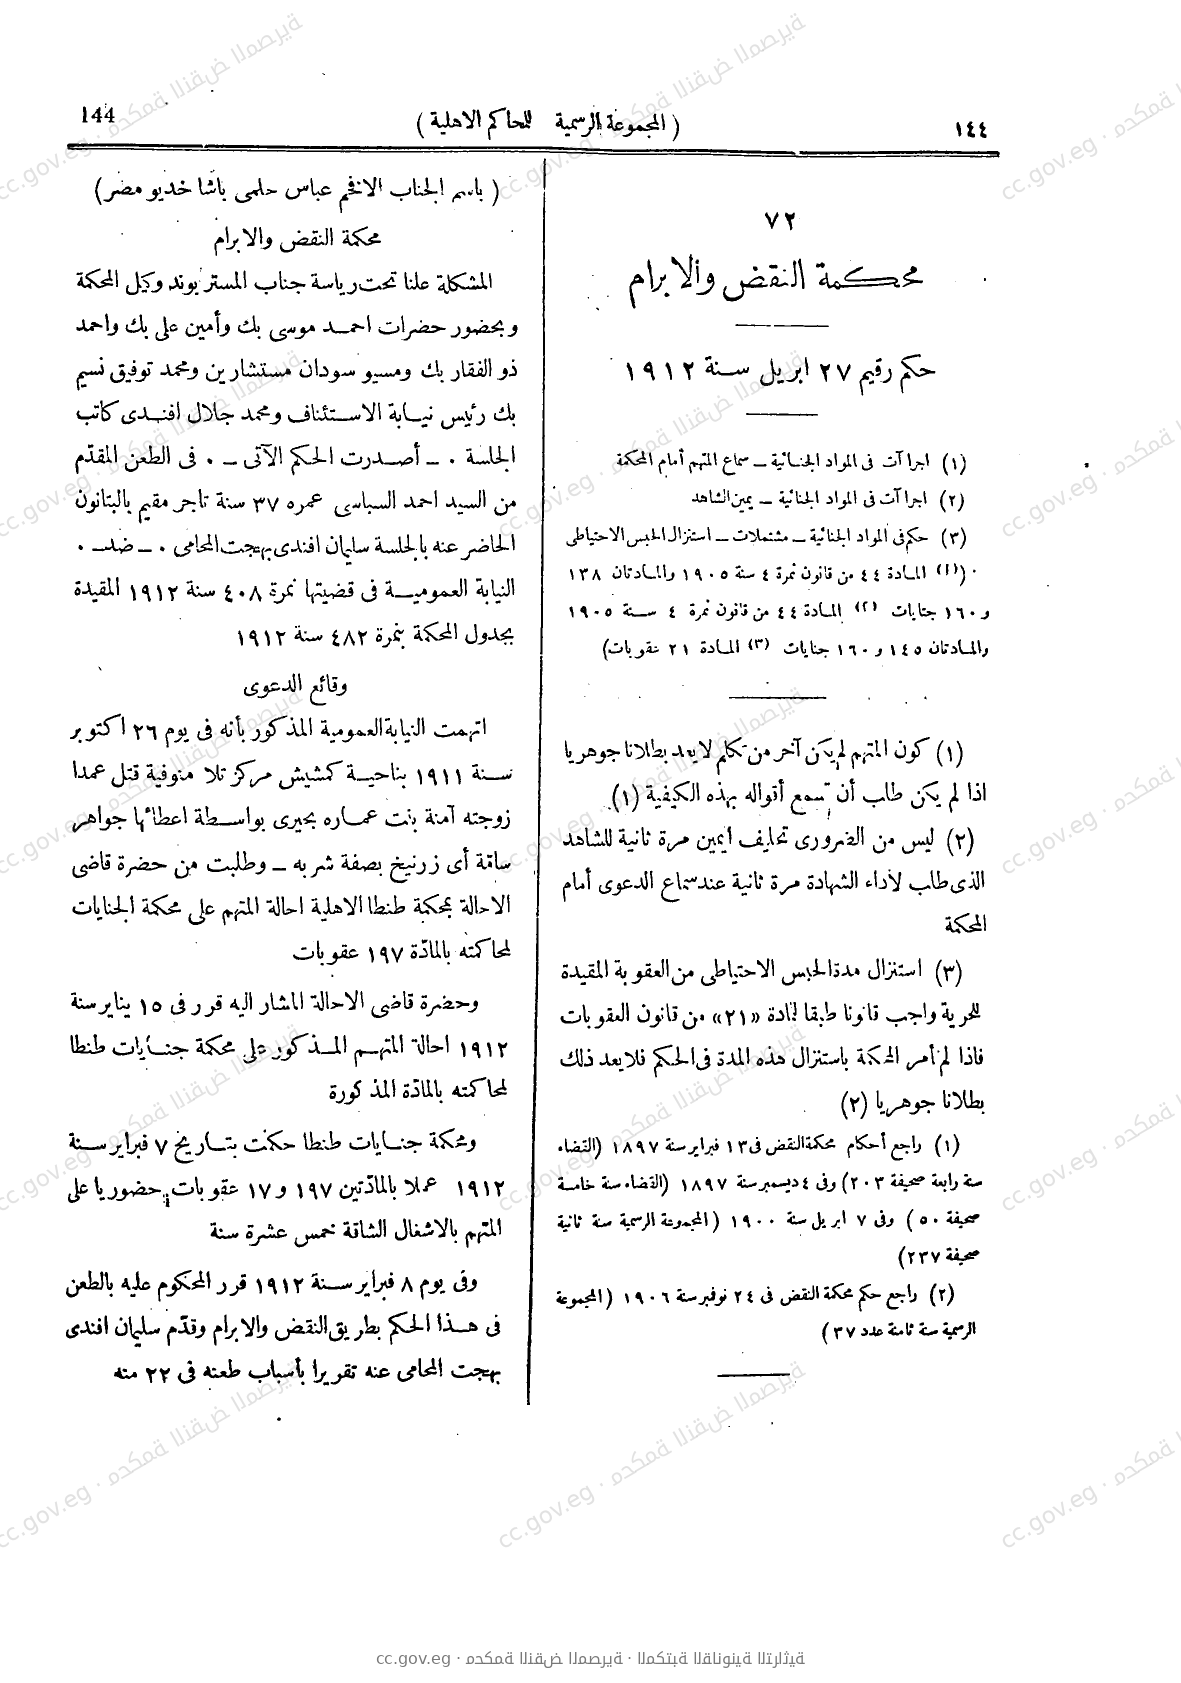 144
( المجموعة الرسمية للمحاكم الاهلية )
١٤٤
٧٢
محكمة النقض والابرام
حكم رقيم ٢٧ ابريل سنة ١٩١٢
(١) اجراآت فى المواد الجنائية – سماع المتهم أمام المحكمة
(٢) اجراآت فى المواد الجنائية – يمين الشاهد
(٣) حكم فى المواد الجنائية – مشتملات – استنزال الحبس الاحتياطى
(«١» المادة ٤٤ من قانون نمرة ٤ سنة ١٩٠٥ والمادتان ١٣٨
و ١٦٠ جنايات «٢» المادة ٤٤ من قانون نمرة ٤ سنة ١٩٠٥
والمادتان ١٤٥ و ١٦٠ جنايات «٣» المادة ٢١ عقوبات)
(١) كون المتهم لم يكن آخر من تكلم لا يعد بطلانا جوهريا
اذا لم يكن طلب أن تسمع أقواله بهذه الكيفية (١)
(٢) ليس من الضرورى تحليف أيمين مرة ثانية للشاهد
الذى طلب لأداء الشهادة مرة ثانية عند سماع الدعوى أمام
المحكمة
(٣) استنزال مدة الحبس الاحتياطى من العقوبة المقيدة
للحرية واجب قانونا طبقا لمادة «٢١» من قانون العقوبات
فاذا لم تأمر المحكمة باستنزال هذه المدة فى الحكم فلا يعد ذلك
بطلانا جوهريا (٢)
(١) راجع أحكام محكمة النقض فى ١٣ فبراير سنة ١٨٩٧ (القضاء
سنة رابعة صحيفة ٢٠٣) وفى ٤ ديسمبر سنة ١٨٩٧ (القضاء سنة خامسة
صحيفة ٥٠) وفى ٧ ابريل سنة ١٩٠٠ (المجموعة الرسمية سنة ثانية
صحيفة ٢٣٧)
(٢) راجع حكم محكمة النقض فى ٢٤ نوفمبر سنة ١٩٠٦ (المجموعة
الرسمية سنة ثامنة عدد ٣٧)
( باسم الجناب الافخم عباس حلمى باشا خديو مصر)
محكمة النقض والابرام
المشكلة علنا تحت رياسة جناب المستر بوند وكيل المحكمة
وبحضور حضرات احمد موسى بك وأمين على بك واحمد
ذو الفقار بك ومسيو سودان مستشارين ومحمد توفيق نسيم
بك رئيس نيابة الاستئناف ومحمد جلال افندى كاتب
الجلسة ٠ – أصدرت الحكم الآتى – ٠ فى الطعن المقدّم
من السيد احمد السباسى عمره ٣٧ سنة تاجر مقيم بالبتانون
الحاضر عنه بالجلسة سليمان افندى بهجت المحامى ٠ – ضد – ٠
النيابة العمومية فى قضيتها نمرة ٤٠٨ سنة ١٩١٢ المقيدة
بجدول المحكمة بنمرة ٤٨٢ سنة ١٩١٢
وقائع الدعوى
اتهمت النيابة العمومية المذكور بأنه فى يوم ٢٦ اكتوبر
سنة ١٩١١ بناحية كمشيش مركز تلا منوفية قتل عمدا
زوجته آمنة بنت عماره بحيرى بواسطة اعطائها جواهر
سامّة أى زرنيخ بصفة شربه – وطلبت من حضرة قاضى
الاحالة بمحكمة طنطا الاهلية احالة المتهم على محكمة الجنايات
لمحاكمته بالمادّة ١٩٧ عقوبات
وحضرة قاضى الاحالة المشار اليه قرر فى ١٥ يناير سنة
١٩١٢ احالة المتهم المذكور على محكمة جنايات طنطا
لمحاكمته بالمادّة المذكورة
ومحكمة جنايات طنطا حكمت بتاريخ ٧ فبراير سنة
١٩١٢ عملا بالمادّتين ١٩٧ و ١٧ عقوبات حضوريا على
المتهم بالاشغال الشاقة خمس عشرة سنة
وفى يوم ٨ فبراير سنة ١٩١٢ قرر المحكوم عليه بالطعن
فى هذا الحكم بطريق النقض والابرام وقدّم سليمان افندى
بهجت المحامى عنه تقريرا بأسباب طعنه فى ٢٢ منه
cc.gov.eg · محكمة النقض المصرية · المكتبة القانونية التراثية